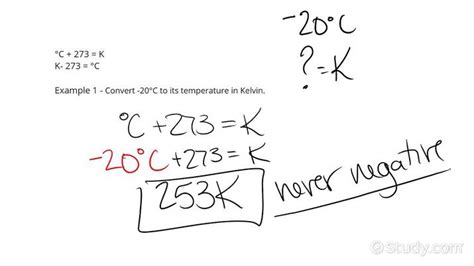 -20°C
? = K
°C + 273 = K
K- 273 = °C
Example 1 - Convert -20°C to its temperature in Kelvin.
°C +273 = K
-20°C +273 = K
253K never negative
Study.com